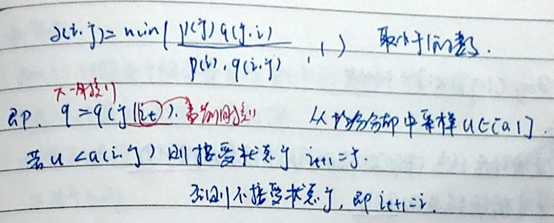 α(i,j)=min( p(j)q(j,i) / p(i),q(i,j) , 1 ) 取小于1的数.
下一时刻
即. q=q(j|it). 当前时刻 从均匀分布中采样 u∈[0,1].
若 u<α(i,j) 则接受状态j it+1=j.
否则不接受状态j, 即 it+1=i.